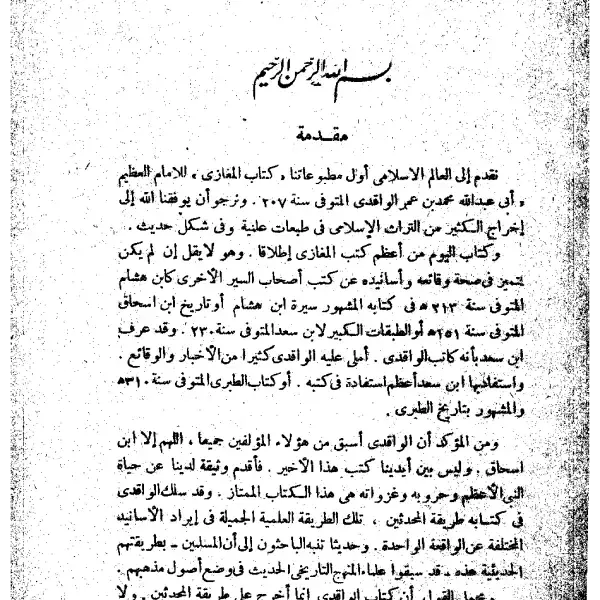 بسم الله الرحمن الرحيم
مقدمة
نقدم إلى العالم الاسلامى أول مطبوعاتنا « كتاب المغازى » للامام العظيم
« أبى عبدالله محمد بن عمر الواقدى المتوفى سنة ٢٠٧ . ونرجو أن يوفقنا الله إلى
إخراج الكثير من التراث الإسلامى فى طبعات علمية وفى شكل حديث .
وكتاب اليوم من أعظم كتب المغازى إطلاقا . وهو لا يقل إن لم يكن
يتميز فى صحة وقائعه وأسانيده عن كتب أصحاب السير الأخرى كابن هشام
المتوفى سنة ٢١٣ ه فى كتابه المشهور سيرة ابن هشام أو تاريخ ابن اسحاق
المتوفى سنة ١٥١ه أو الطبقات الكبير لابن سعد المتوفى سنة ٢٣٠ . وقد عرف
ابن سعد بأنه كاتب الواقدى . أملى عليه الواقدى كثيرا من الأخبار والوقائع .
واستفاد بها ابن سعد أعظم استفادة فى كتبه . أو كتاب الطبرى المتوفى سنة ٣١٠ه
والمشهور بتاريخ الطبرى .
ومن المؤكد أن الواقدى أسبق من هؤلاء المؤلفين جميعا ، اللهم إلا ابن
اسحاق . وليس بين أيدينا كتب هذا الأخير . فأقدم وثيقة لدينا عن حياة
النبى الأعظم وحروبه وغزواته هى هذا الكتاب الممتاز . وقد سلك الواقدى
فى كتابه طريقة المحدثين ، تلك الطريقة العلمية الجميلة فى إيراد الأسانيد
المختلفة عن الواقعة الواحدة . وحديثا تنبه الباحثون إلى أن المسلمين ـ بطريقتهم
الحديثية هذه ، قد سبقوا علماء المنهج التاريخى الحديث فى وضع أصول مذهبهم .
القول أن كتاب الواقدى إنما أخرج على طريقة المحدثين . ولا